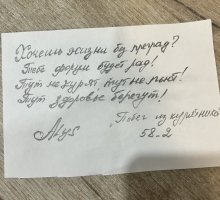 Хочешь жизни без преград?
Тебе форум будет рад!
Тут не курят, тут не пьют!
Тут здоровье берегут!
Alys
Побег из курятника
58-2